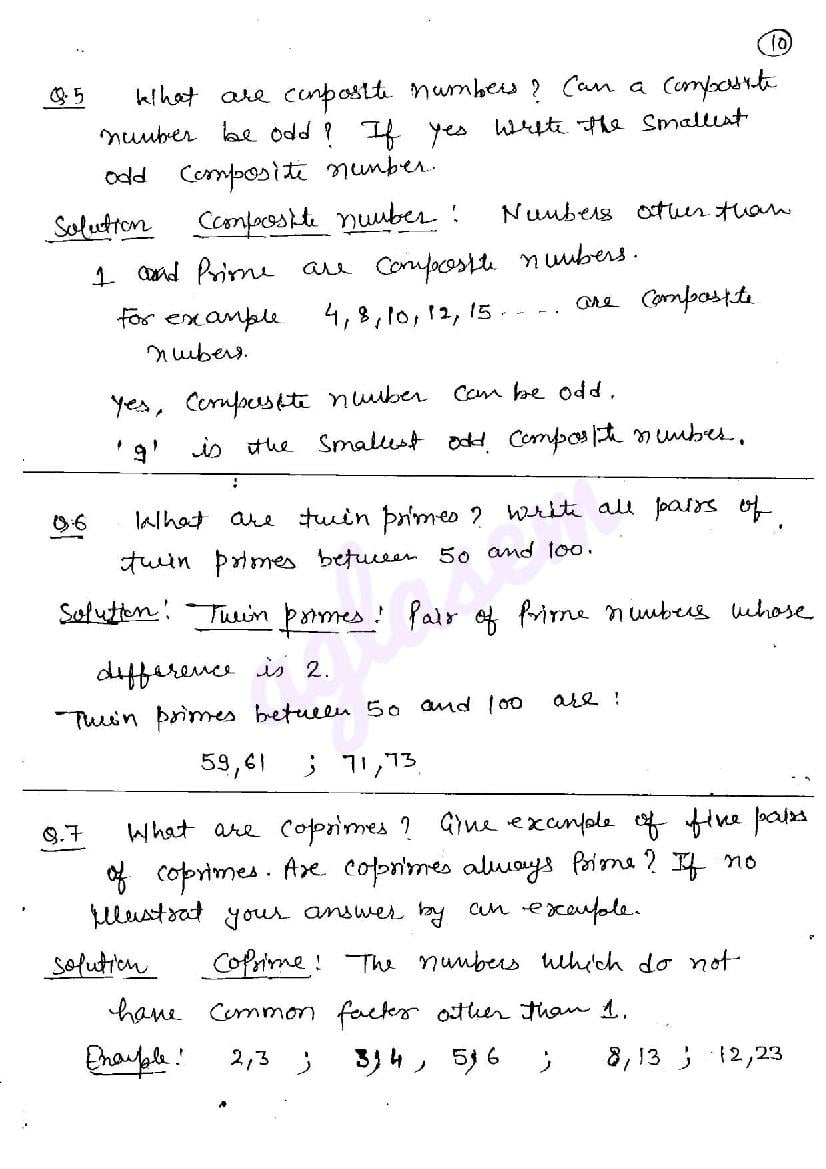 10
Q.5 What are composite numbers? Can a composite
number be odd? If yes write the smallest
odd composite number.
Solution Composite number: Numbers other than
1 and Prime are composite numbers.
For example 4,8,10,12,15..... are composite
numbers.
Yes, composite number can be odd.
'9' is the smallest odd composite number.
Q.6 What are twin primes? Write all pairs of
twin primes between 50 and 100.
Solution: Twin primes: Pair of Prime numbers whose
difference is 2.
Twin primes between 50 and 100 are:
59,61 ; 71,73
Q.7 What are coprimes? Give example of five pairs
of coprimes. Are coprimes always Prime? If no
illustrat your answer by an example.
Solution Coprime: The numbers which do not
have common factor other than 1.
Example: 2,3 ; 3,4 , 5,6 ; 8,13 ; 12,23
aglasem